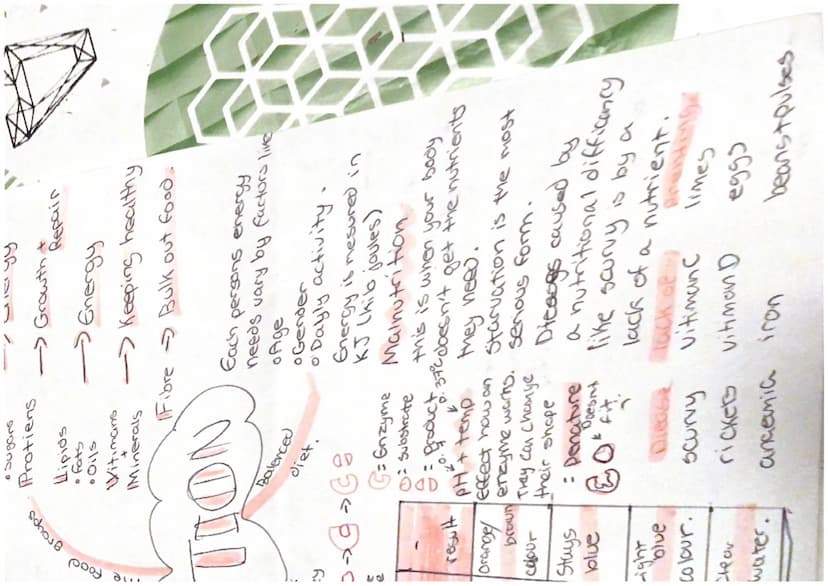 • Sugars
Protiens → Growth + Repair
Lipids
• Fats
• Oils → Energy
Vitmans
+
Minerals → Keeping healthy
Fibre → Bulk out food.
Each persons energy
needs vary by factors like
o Age
o Gender
o Dayly activity.
Energy is mesured in
KJ (kilo joules)
Malnutrition
this is when your body
doesn't get the nutrients
they need.
Starvation is the most
serious form.
Dieseases caused by
a nutritional difficancy
like scurvy is by a
lack of a nutrient.
Disease lack of
scurvy vitiman C limes
rickets vitiman D eggs
aneamia iron beans + pulses
Balanced
diet.
= Enzyme
= substrate
= Product
e.g. e.g. 37°C
pH + temp
effect how an
enzyme works.
They can change
their shape
= Denature
Doesn't
fit.
-
result
orange/
brown
colour
Stays
blue
blue
colour.
water.
Food Groups